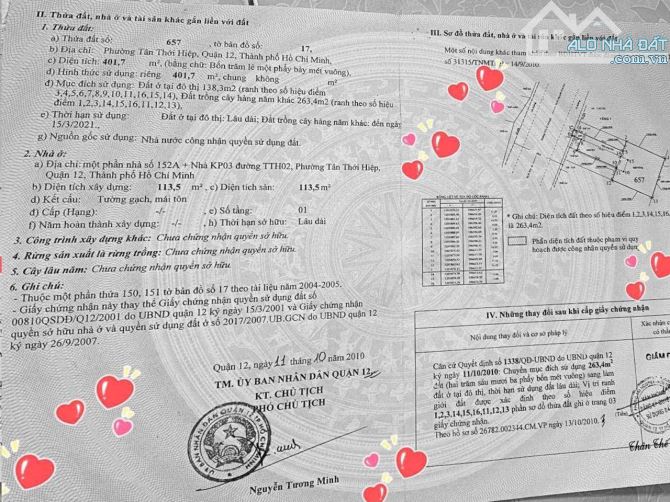 II. Thửa đất, nhà ở và tài sản khác gắn liền với đất
1. Thửa đất:
a) Thửa đất số: 657, tờ bản đồ số: 17,
b) Địa chỉ: Phường Tân Thới Hiệp, Quận 12, Thành phố Hồ Chí Minh,
c) Diện tích: 401,7 m², (bằng chữ: Bốn trăm lẻ một phẩy bảy mét vuông),
d) Hình thức sử dụng: riêng 401,7 m², chung không m²
đ) Mục đích sử dụng: Đất ở tại đô thị 138,3m² (ranh theo số hiệu điểm
3,4,5,6,7,8,9,10,11,16,15,14), Đất trồng cây hàng năm khác 263,4m² (ranh theo số hiệu
điểm 1,2,3,14,15,16,11,12,13),
e) Thời hạn sử dụng: Đất ở tại đô thị: Lâu dài; Đất trồng cây hàng năm khác: đến ngày
15/3/2021..
g) Nguồn gốc sử dụng: Nhà nước công nhận quyền sử dụng đất.
2. Nhà ở:
a) Địa chỉ: một phần nhà số 152A + Nhà KP03 đường TTH02, Phường Tân Thới Hiệp,
Quận 12, Thành phố Hồ Chí Minh
b) Diện tích xây dựng: 113,5 m², c) Diện tích sàn: 113,5m²
d) Kết cấu: Tường gạch, mái tôn
đ) Cấp (Hạng): -/- , e) Số tầng: 01
f) Năm hoàn thành xây dựng: -/- , h) Thời hạn sở hữu: Lâu dài
3. Công trình xây dựng khác: Chưa chứng nhận quyền sở hữu.
4. Rừng sản xuất là rừng trồng: Chưa chứng nhận quyền sở hữu.
5. Cây lâu năm: Chưa chứng nhận quyền sở hữu.
6. Ghi chú:
- Thuộc một phần thửa 150, 151 tờ bản đồ số 17 theo tài liệu năm 2004-2005.
- Giấy chứng nhận này thay thế Giấy chứng nhận quyền sử dụng đất số
00810QSDĐ/Q12/2001 do UBND quận 12 ký ngày 15/3/2001 và Giấy chứng nhận
quyền sở hữu nhà ở và quyền sử dụng đất ở số 2017/2007.UB.GCN do UBND quận 12
ký ngày 26/9/2007.
Quận 12, ngày 11 tháng 10 năm 2010
TM. ỦY BAN NHÂN DÂN QUẬN 12
KT. CHỦ TỊCH
PHÓ CHỦ TỊCH
Nguyễn Tương Minh
III. Sơ đồ thửa đất, nhà ở và tài sản khác gắn liền với đất
Một số nội dung khác tham khảo
số 31315/TNMT 14/9/2010.
ALO NHÀ ĐẤT
alonhadat.com.vn
657
* Ghi chú: Diện tích đất theo số hiệu điểm 1,2,3,14,15,16
là 263,4m²
Phần diện tích đất thuộc phạm vi quy
hoạch được công nhận quyền sử dụng
IV. Những thay đổi sau khi cấp giấy chứng nhận
Nội dung thay đổi và cơ sở pháp lý
Xác nhận
Căn cứ Quyết định số 1338/QĐ-UBND do UBND quận 12
ký ngày 11/10/2010: Chuyển mục đích sử dụng 263,4m²
đất (hai trăm sáu mươi ba phẩy bốn mét vuông) sang làm
đất ở tại đô thị, thời hạn sử dụng đất lâu dài; Vị trí ranh
giới đất được xác định theo số hiệu điểm
1,2,3,14,15,16,11,12,13 phần sơ đồ thửa đất ghi ở trang 03
giấy chứng nhận.
Theo hồ sơ số 26782.002344.CM.VP ngày 13/10/2010.
GIÁM
Trần Thế